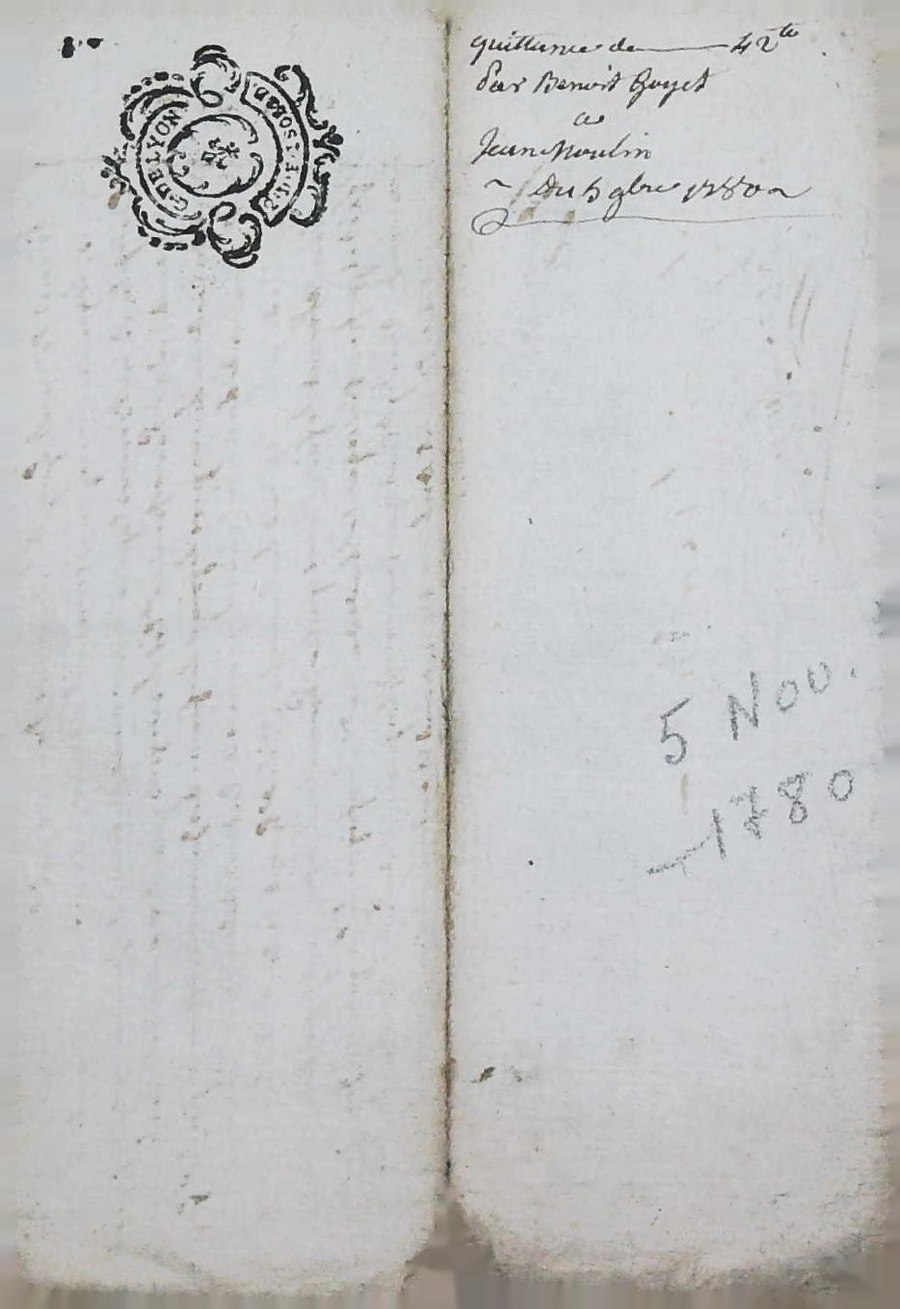 G. DE LYON
quittance de 42 tt
Par Benoit Goyet
a
Jean Moulin
Du 5 9bre 1780
5 Nov.
1780